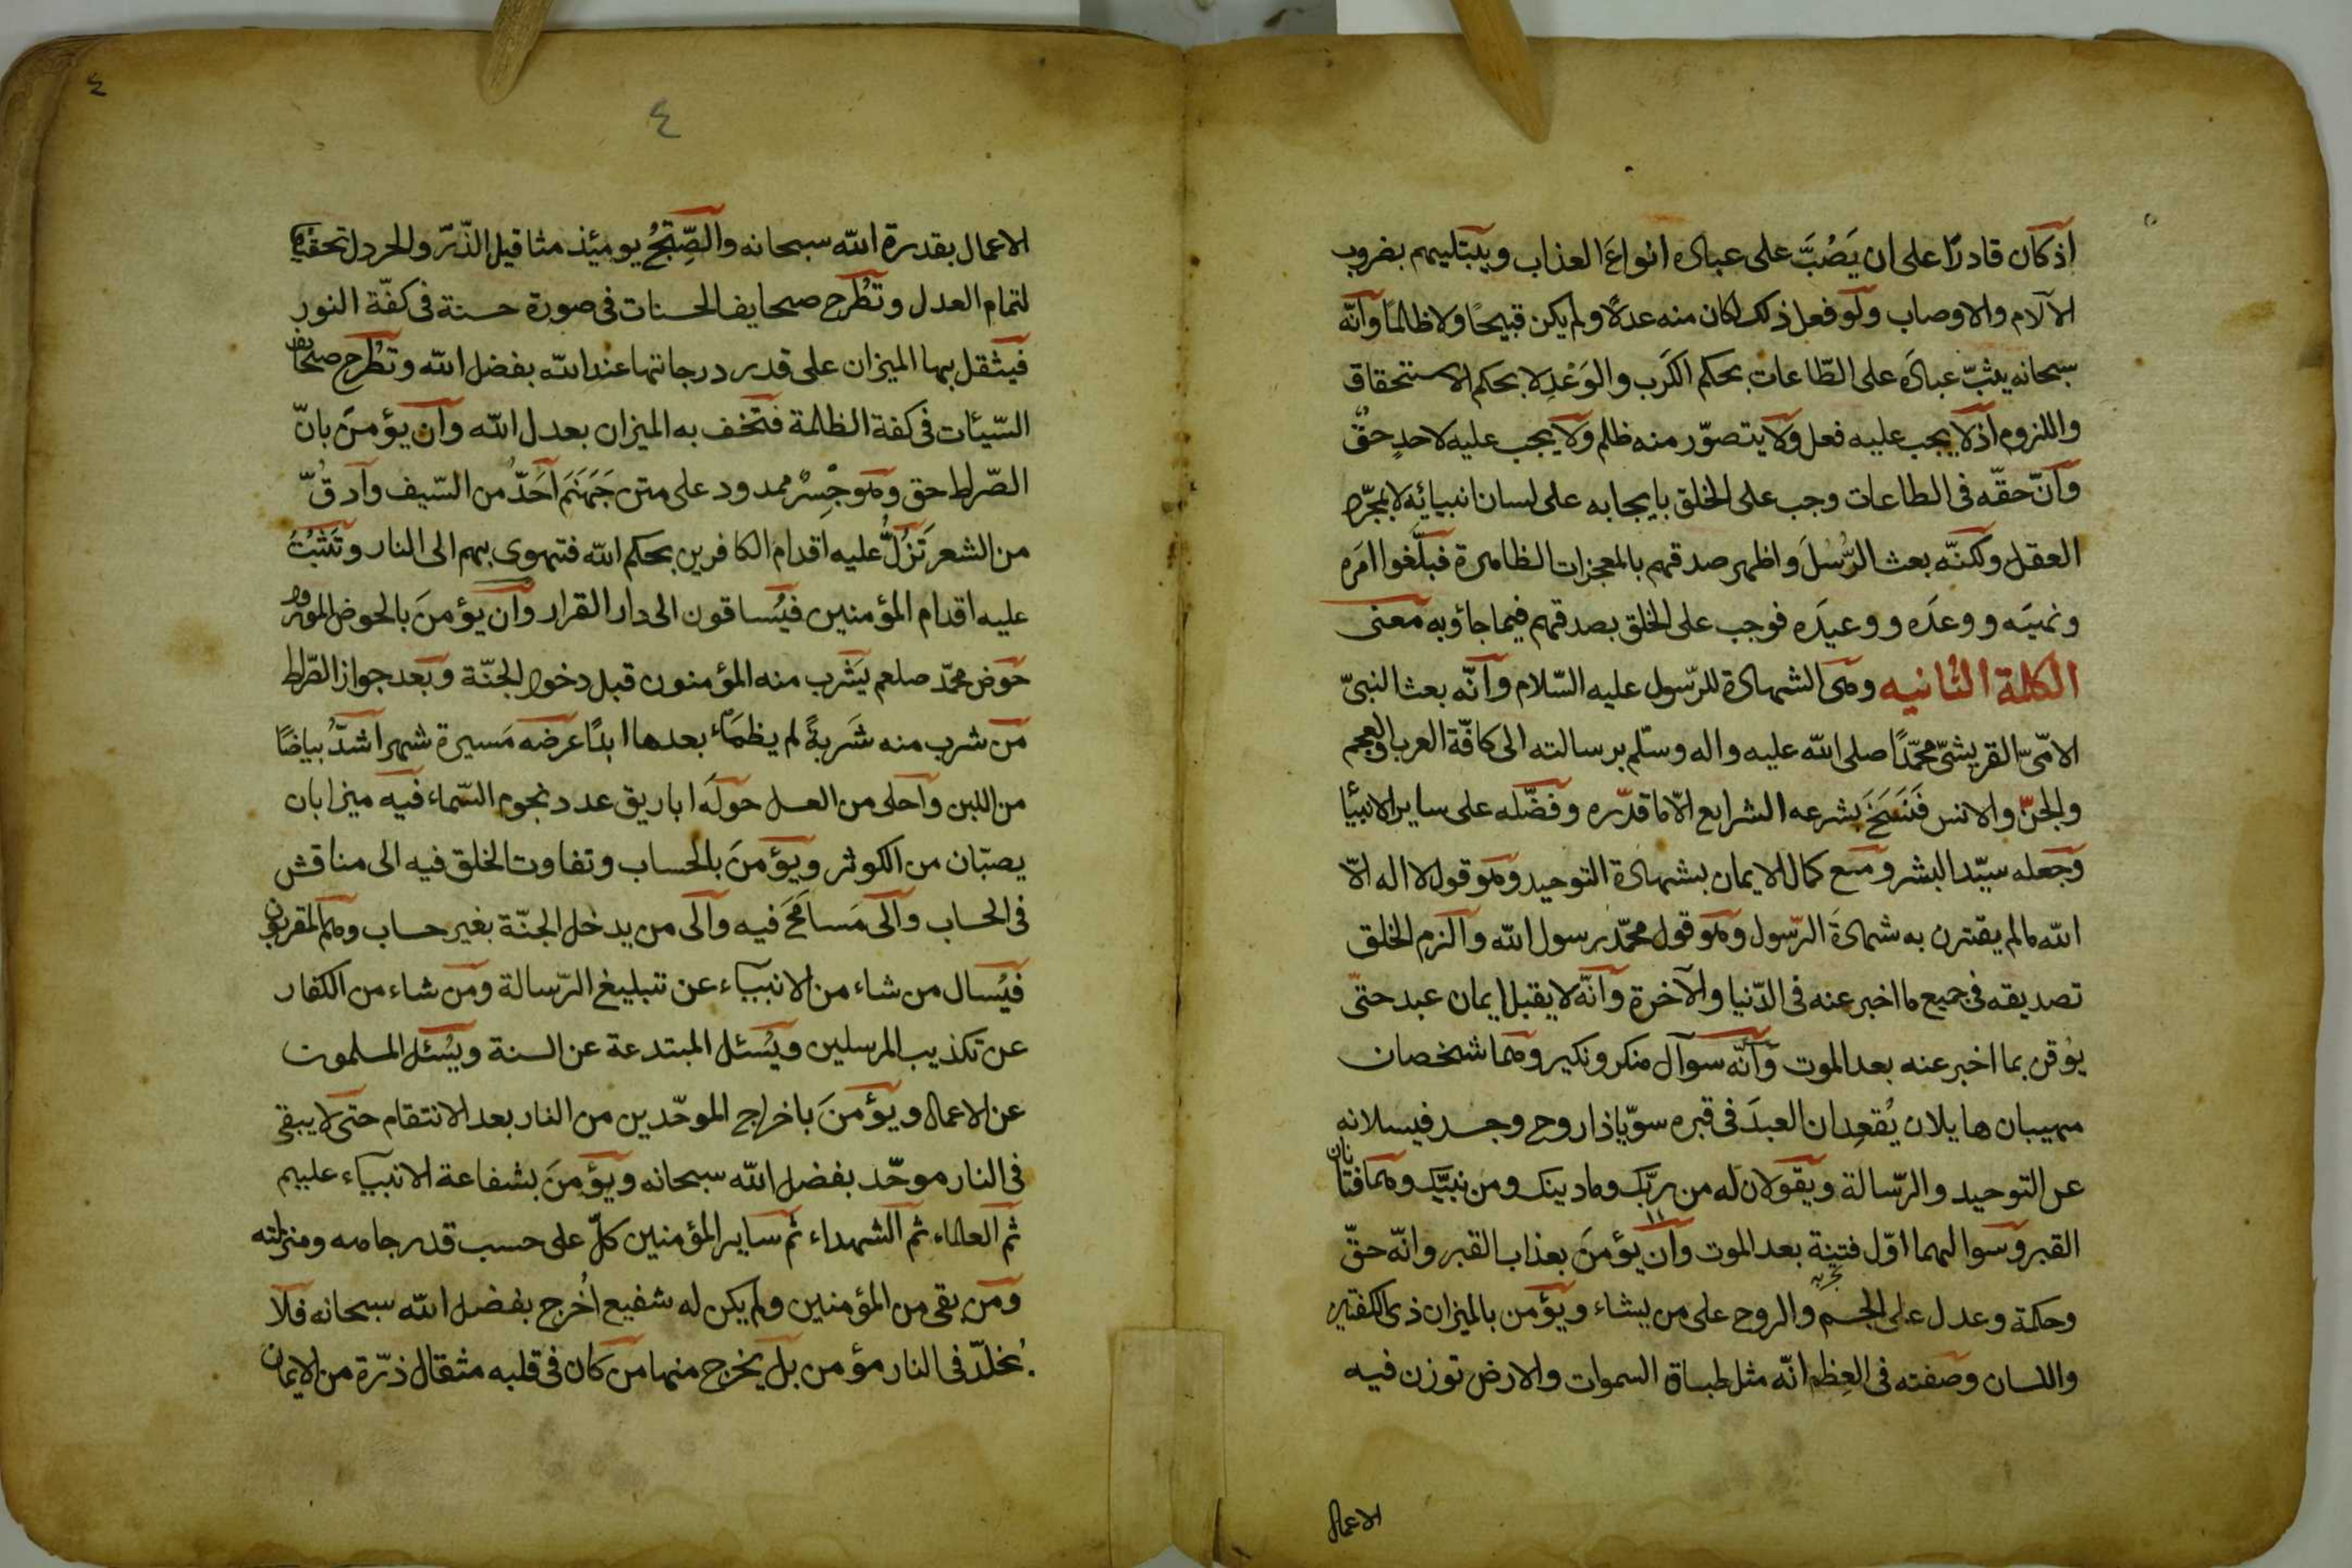 اذ كان قادرًا على ان يَصُبَّ على عباده انواعَ العذاب ويبتليهم بضروب
الآلام والاوصاب ولو فعل ذلك لكان منه عدلًا ولم يكن قبيحًا ولا ظالمًا وانّه
سبحانه يثبّ عبادَه على الطّاعات بحكم الكَرَب والوَعْدِ لا بحكم الاستحقاق
واللزوم اذ لا يجب عليه فعل ولا يتصوّر منه ظلم ولا يجب عليه لاحدٍ حقٌّ
وانّ حقّه فى الطاعات وجب على الخلق بايجابه على لسان انبيائه لا بمجرّد
العقل ولكنّه بعث الرُّسُلَ واظهر صدقهم بالمعجزات الظاهرة فبلّغوا امرَه
ونهيَه ووعدَه ووعيدَه فوجب على الخلق بصدقهم فيما جاؤبه معنى
الكلمة الثانيه وهى الشهادة للرّسول عليه السّلام وانّه بعث النبىّ
الامّىّ القريشىّ محمّدًا صلى الله عليه واله وسلّم برسالته الى كافّة العرب والعجم
والجنّ والانس فَنَسَخَ بشرعه الشرايع الّا ما قدّره وفضّله على ساير الانبئا
وجعله سيّد البشر ومنع كمال الايمان بشهادة التوحيد وهو قول لا اله الّا
الله ما لم يقترن به شهادَة الرّسول وهو قول محمّد رسول الله والزم الخلق
تصديقه فى جميع ما اخبر عنه فى الدّنيا والآخرة وانّه لا يقبل ايمان عبد حتّى
يوُقن بما اخبر عنه بعد الموت وانّه سوآل منكر ونكير وهما شخصان
مهيبان هايلان يُقعِدان العبدَ فى قبره سويّا ذا روح وجسد فيسلانه
عن التوحيد والرّسالة ويقولان له من ربّك وما دينك ومن نبيّك وهما فتانان
القبر وسوالهما اوّل فتنة بعد الموت وان يؤمنَ بعذاب القبر وانّه حقّ
وحكمة وعدل على الجسم والروح على من يشاء ويؤمن بالميزان ذى الكفتين
واللسان وصفته فى العِظم انّه مثل طباق السموات والارض توزن فيه
الاعمال
٤
٤
الاعمال بقدرة الله سبحانه والصِّنَجُ يومئِذ مثاقيل الذّرّ والخردل تحقيقا
لتمام العدل وتُطْرح صحايف الحسنات فى صورة حسنة فى كفّة النور
فيَثقل بها الميزان على قدر درجاتها عند الله بفضل الله وتطرح صحايف
السّيئات فى كفة الظلمة فتخف به الميزان بعدل الله وان يؤمنَ بانّ
الصّراط حق وهو جِسرْ ممدود على متن جَهَنَّم اَحَدُّ من السّيف وادقُّ
من الشعر تَزُلُّ عليه اقدام الكافرين بحكم الله فتهوى بهم الى النار وتَثبُتُ
عليه اقدام المؤمنين فيُساقون الى دار القرار وان يؤمنَ بالحوض المورود
حوَض محمّد صلعم يَشرب منه المؤمنون قبل دخول الجنّة وبَعد جواز الصّراط
من شرب منه شَربةً لم يظمَأ بعدها ابدًا عرضه مَسيرة شهر اشدُّ بياضًا
من اللبن واحلى من العسل حولَه اباريق عدد نجوم السّماء فيه ميزابان
يصبّان من الكوثر ويؤمنَ بالحساب وتفاوت الخلق فيه الى مناقش
فى الحساب والى مَسامَح فيه والى من يدخل الجنّة بغير حساب وهم المقربون
فيُسال من شاء من الانبياء عن تبليغ الرّسالة ومن شاء من الكفار
عن تكذيب المرسلين ويُسئل المبتدعة عن السنة ويُسئل المسلمون
عن الاعمال ويؤمنَ باخراج الموحّدين من النار بعد الانتقام حتى لا يبقى
فى النار موحّد بفضل الله سبحانه ويؤمِنَ بشفاعة الانبياء عليهم
ثم العلماء ثم الشهداء ثم ساير المؤمنين كلّ على حسب قدر جاهه ومنزلته
ومَن بقى من المؤمنين ولم يكن له شفيع اُخرج بفضل الله سبحانه فلا
يُخلدّ فى النار مؤمن بل يخرج منها من كان فى قلبه مثقال ذرّة من الايمان